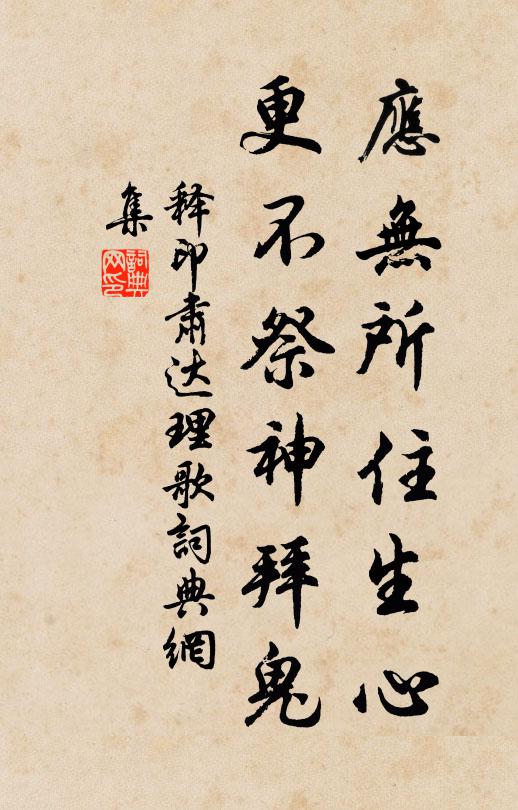 應無所住生心
更不祭神拜鬼
释印肃达理歌詞典網
集
詞典
网印